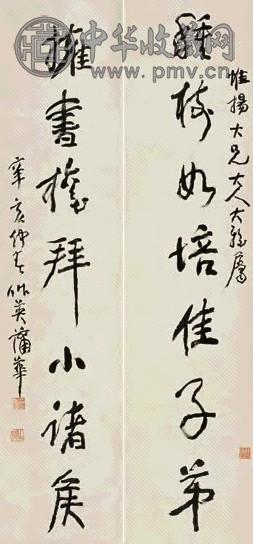 中华收藏网
www.pmv.cn
惟揚大兄大人大雅屬
種樹如培佳子弟
擁書權拜小諸侯
辛亥仲春作英蒲華